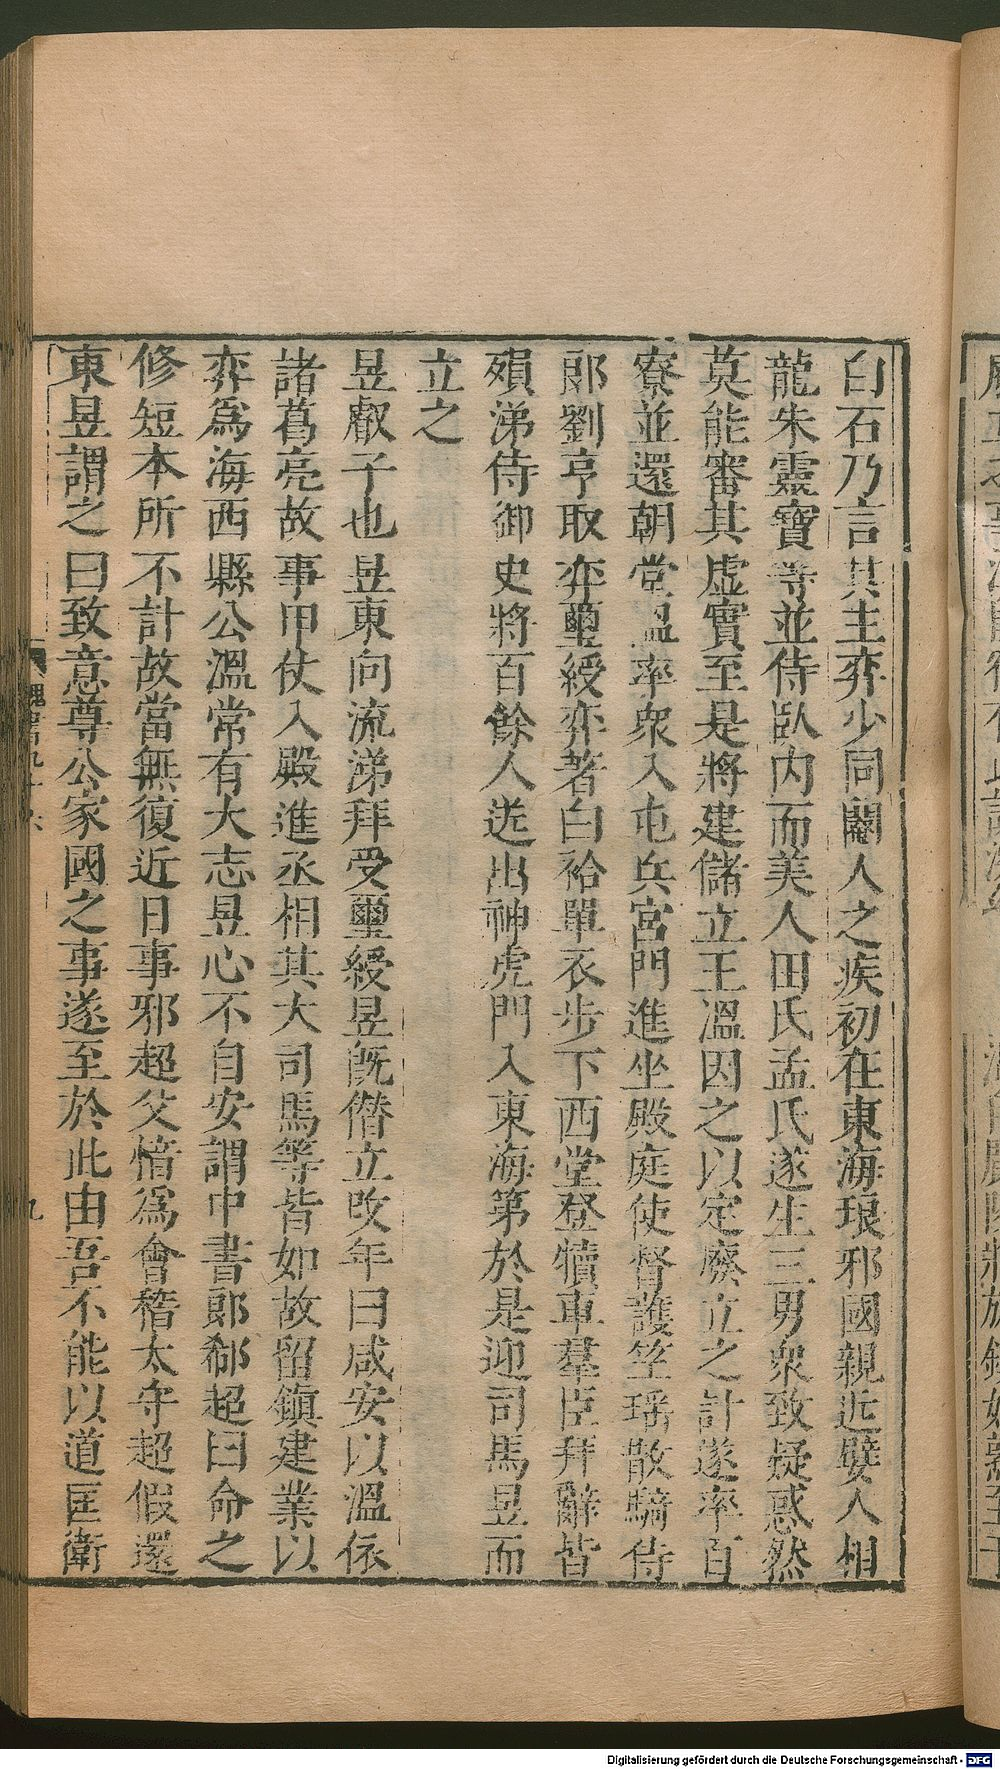 白石乃言其主弈少同閹人之疾初在東海琅邪國親近嬖人相
龍朱靈寶等並侍臥内而美人田氏孟氏遂生三男衆致疑惑然
莫能審其虛實至是將建儲立王溫因之以定廢立之計遂率百
寮並還朝堂溫率衆入屯兵宮門進坐殿庭使督護竺瑶散騎侍
郎劉亨取弈璽綬弈著白袷單衣步下西堂登犢車羣臣拜辭皆
殞涕侍御史將百餘人送出神虎門入東海第於是迎司馬昱而
立之
昱叡子也昱東向流涕拜受璽綬昱旣僭立改年曰咸安以溫依
諸葛亮故事甲仗入殿進丞相其大司馬等皆如故留鎮建業以
弈爲海西縣公溫常有大志昱心不自安謂中書郎郗超曰命之
修短本所不計故當無復近日事邪超父愔爲會稽太守超假還
東昱謂之曰致意尊公家國之事遂至於此由吾不能以道匡衛
魏書九十六
九
Digitalisierung gefördert durch die Deutsche Forschungsgemeinschaft - DFG